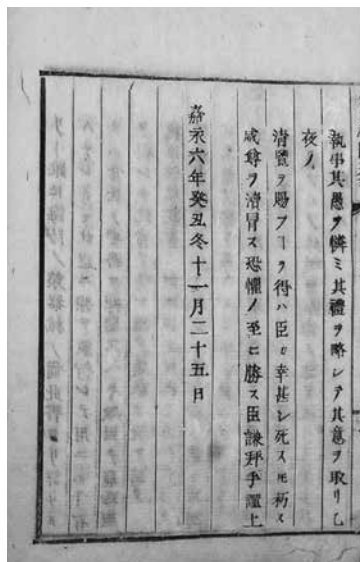 執事其愚ヲ憐ミ其禮ヲ略シテ其意ヲ取リ乙
夜ノ
清覽ヲ賜フヿヲ得ハ臣ノ幸甚シ死スㇳモ朽ス
威尊ヲ瀆冒ス恐懼ノ至ニ勝ス臣謙拜手謹上
嘉永六年癸丑冬十一月二十五日